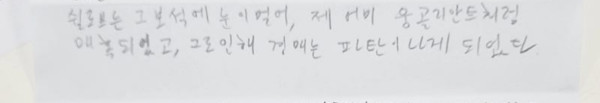 쉴로브는 그 보석에 눈이 멀어, 제 어미 웅골리안트처럼
매혹되었고, 그로 인해 경매는 파탄이 나게 되었다.